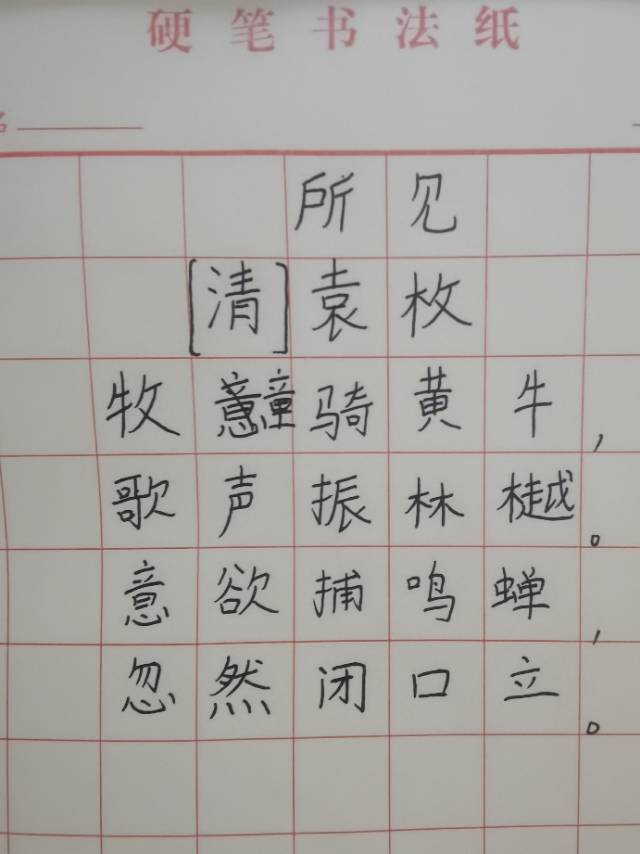 硬笔书法纸
名
所见
[清]袁枚
牧童骑黄牛,
歌声振林樾。
意欲捕鸣蝉,
忽然闭口立。